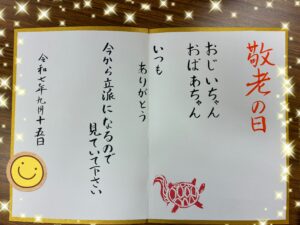 敬老の日
おじいちゃん
おばあちゃん
いつも
ありがとう
今から立派になるので
見ていて下さい
令和七年九月十五日